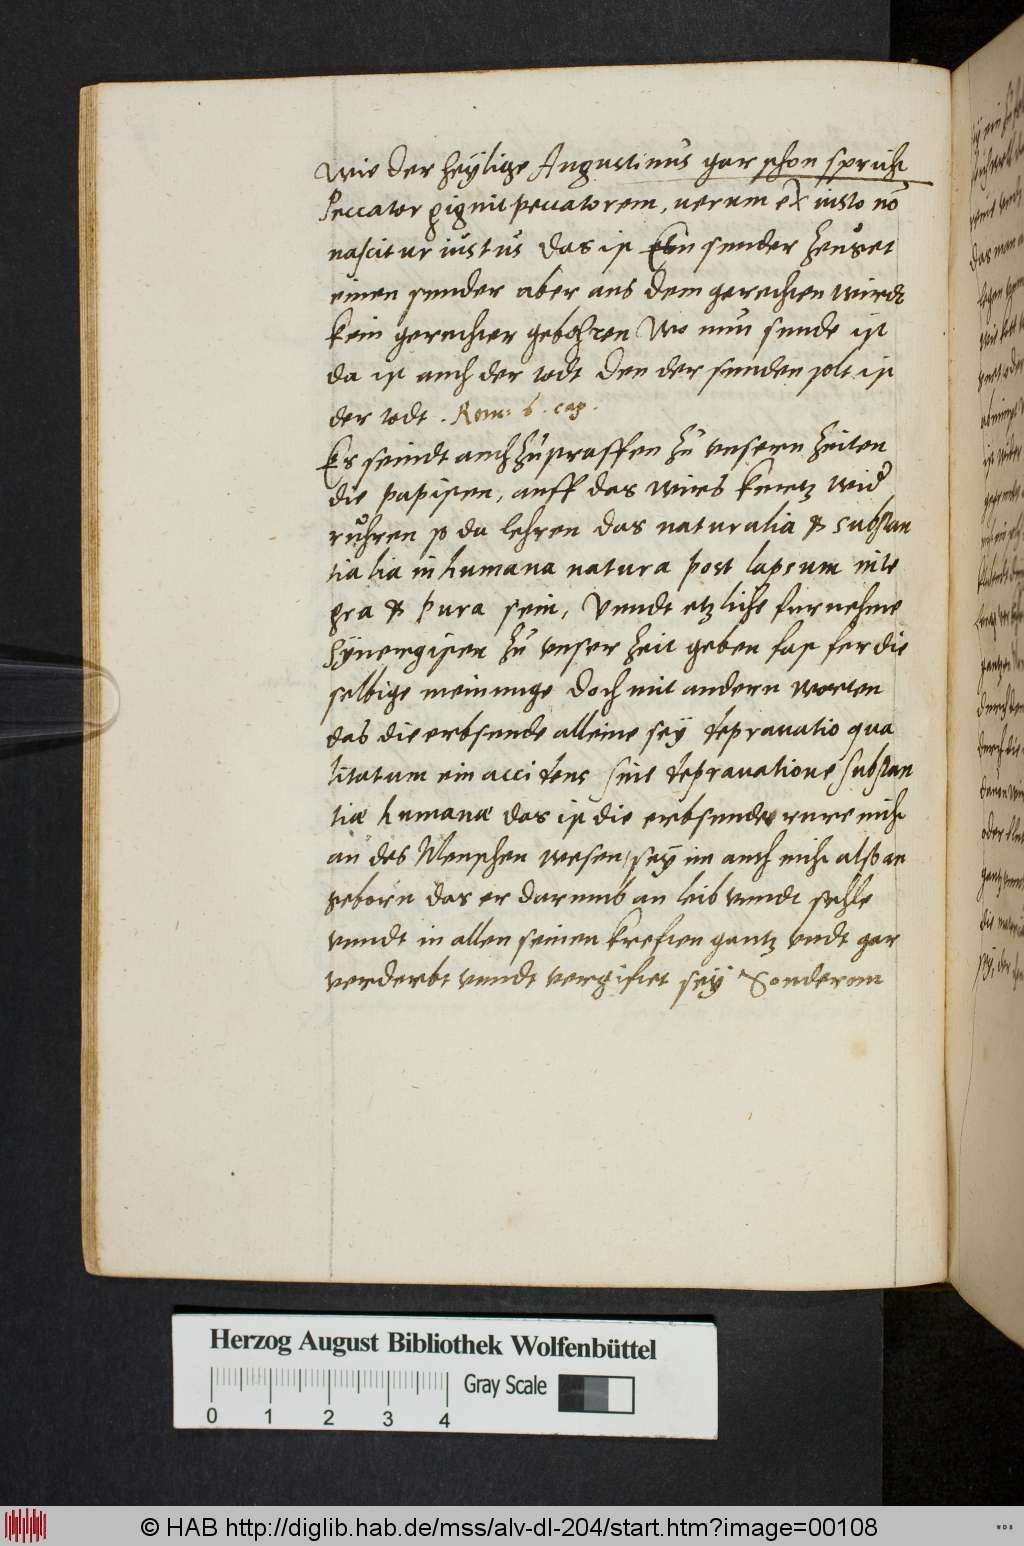 Wie der heÿlige Augustinus gar schon spricht
Peccator gignit peccatorem, uerum ex iusto nō
nascitur iustus das ist Ein sunder zeuget
einen sunder aber aus dem gerechten wirdt
kein gerechter gebohren Wo nuн sunde ist
da ist auch der todt den der sunden solt ist
der todt . Rom: 6 . cap.
Es seindt auch zu straffen zu vnsern zeiten
die papisten, auff das wirs kurtz wid
ruhren so da lehren das naturalia & substan
tialia in humana natura post lapsum inte
gra & pura sein, Vnndt etzliche furnehme
Sÿnergisten zu vnser zeit geben fast fer die
selbige meinunge doch mit andern worten
das die erbsunde alleine seÿ deprauatio qua
litatum ein accidens sine deprauatione substan
tiæ humanæ das ist die erbsunde rure nicht
an des Menschen wesen, seÿ im auch nicht alßo an
geborn das er darumb an leib vnndt sehle
vnndt in allen seinen kreften gantz vndt gar
verderbt vnndt vergiftet seÿ Sonderem
Herzog August Bibliothek Wolfenbüttel
Gray Scale
0 1 2 3 4
© HAB http://diglib.hab.de/mss/alv-dl-204/start.htm?image=00108